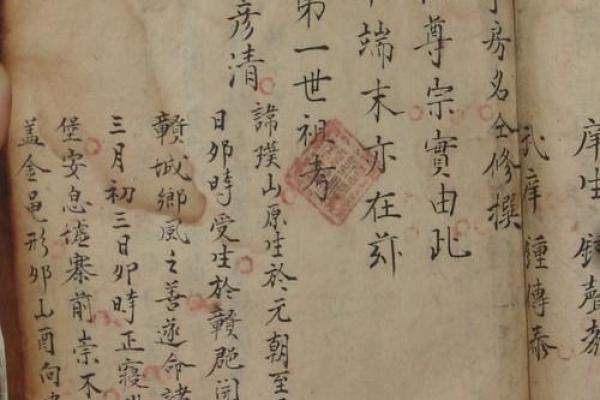 庠生鍾聲
武庠鍾傳泰
房名全修撰
尊宗實由此
端末亦在玆
第一世祖考
彥清
諱璞山原生於元朝至
日卯時受生於贛郡開
贛城鄉風之善遂命諸
三月初三日卯時正寢
堡安息墟寨前崇不
盖金黽形卯山酉向